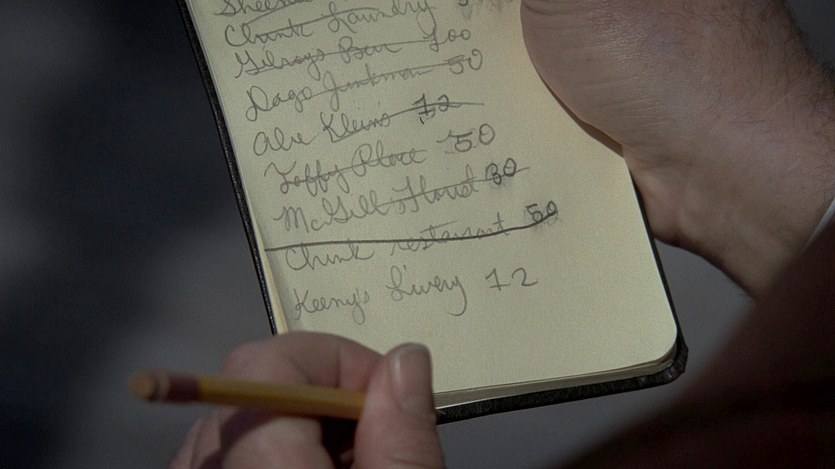 Chink Laundry
Gilroy's Bar 100
Dago Junkman 50
Abe Klein's 12
Taffy Place 50
McGill's Florist 30
Chink restaurant 50
Keeny's Livery 12